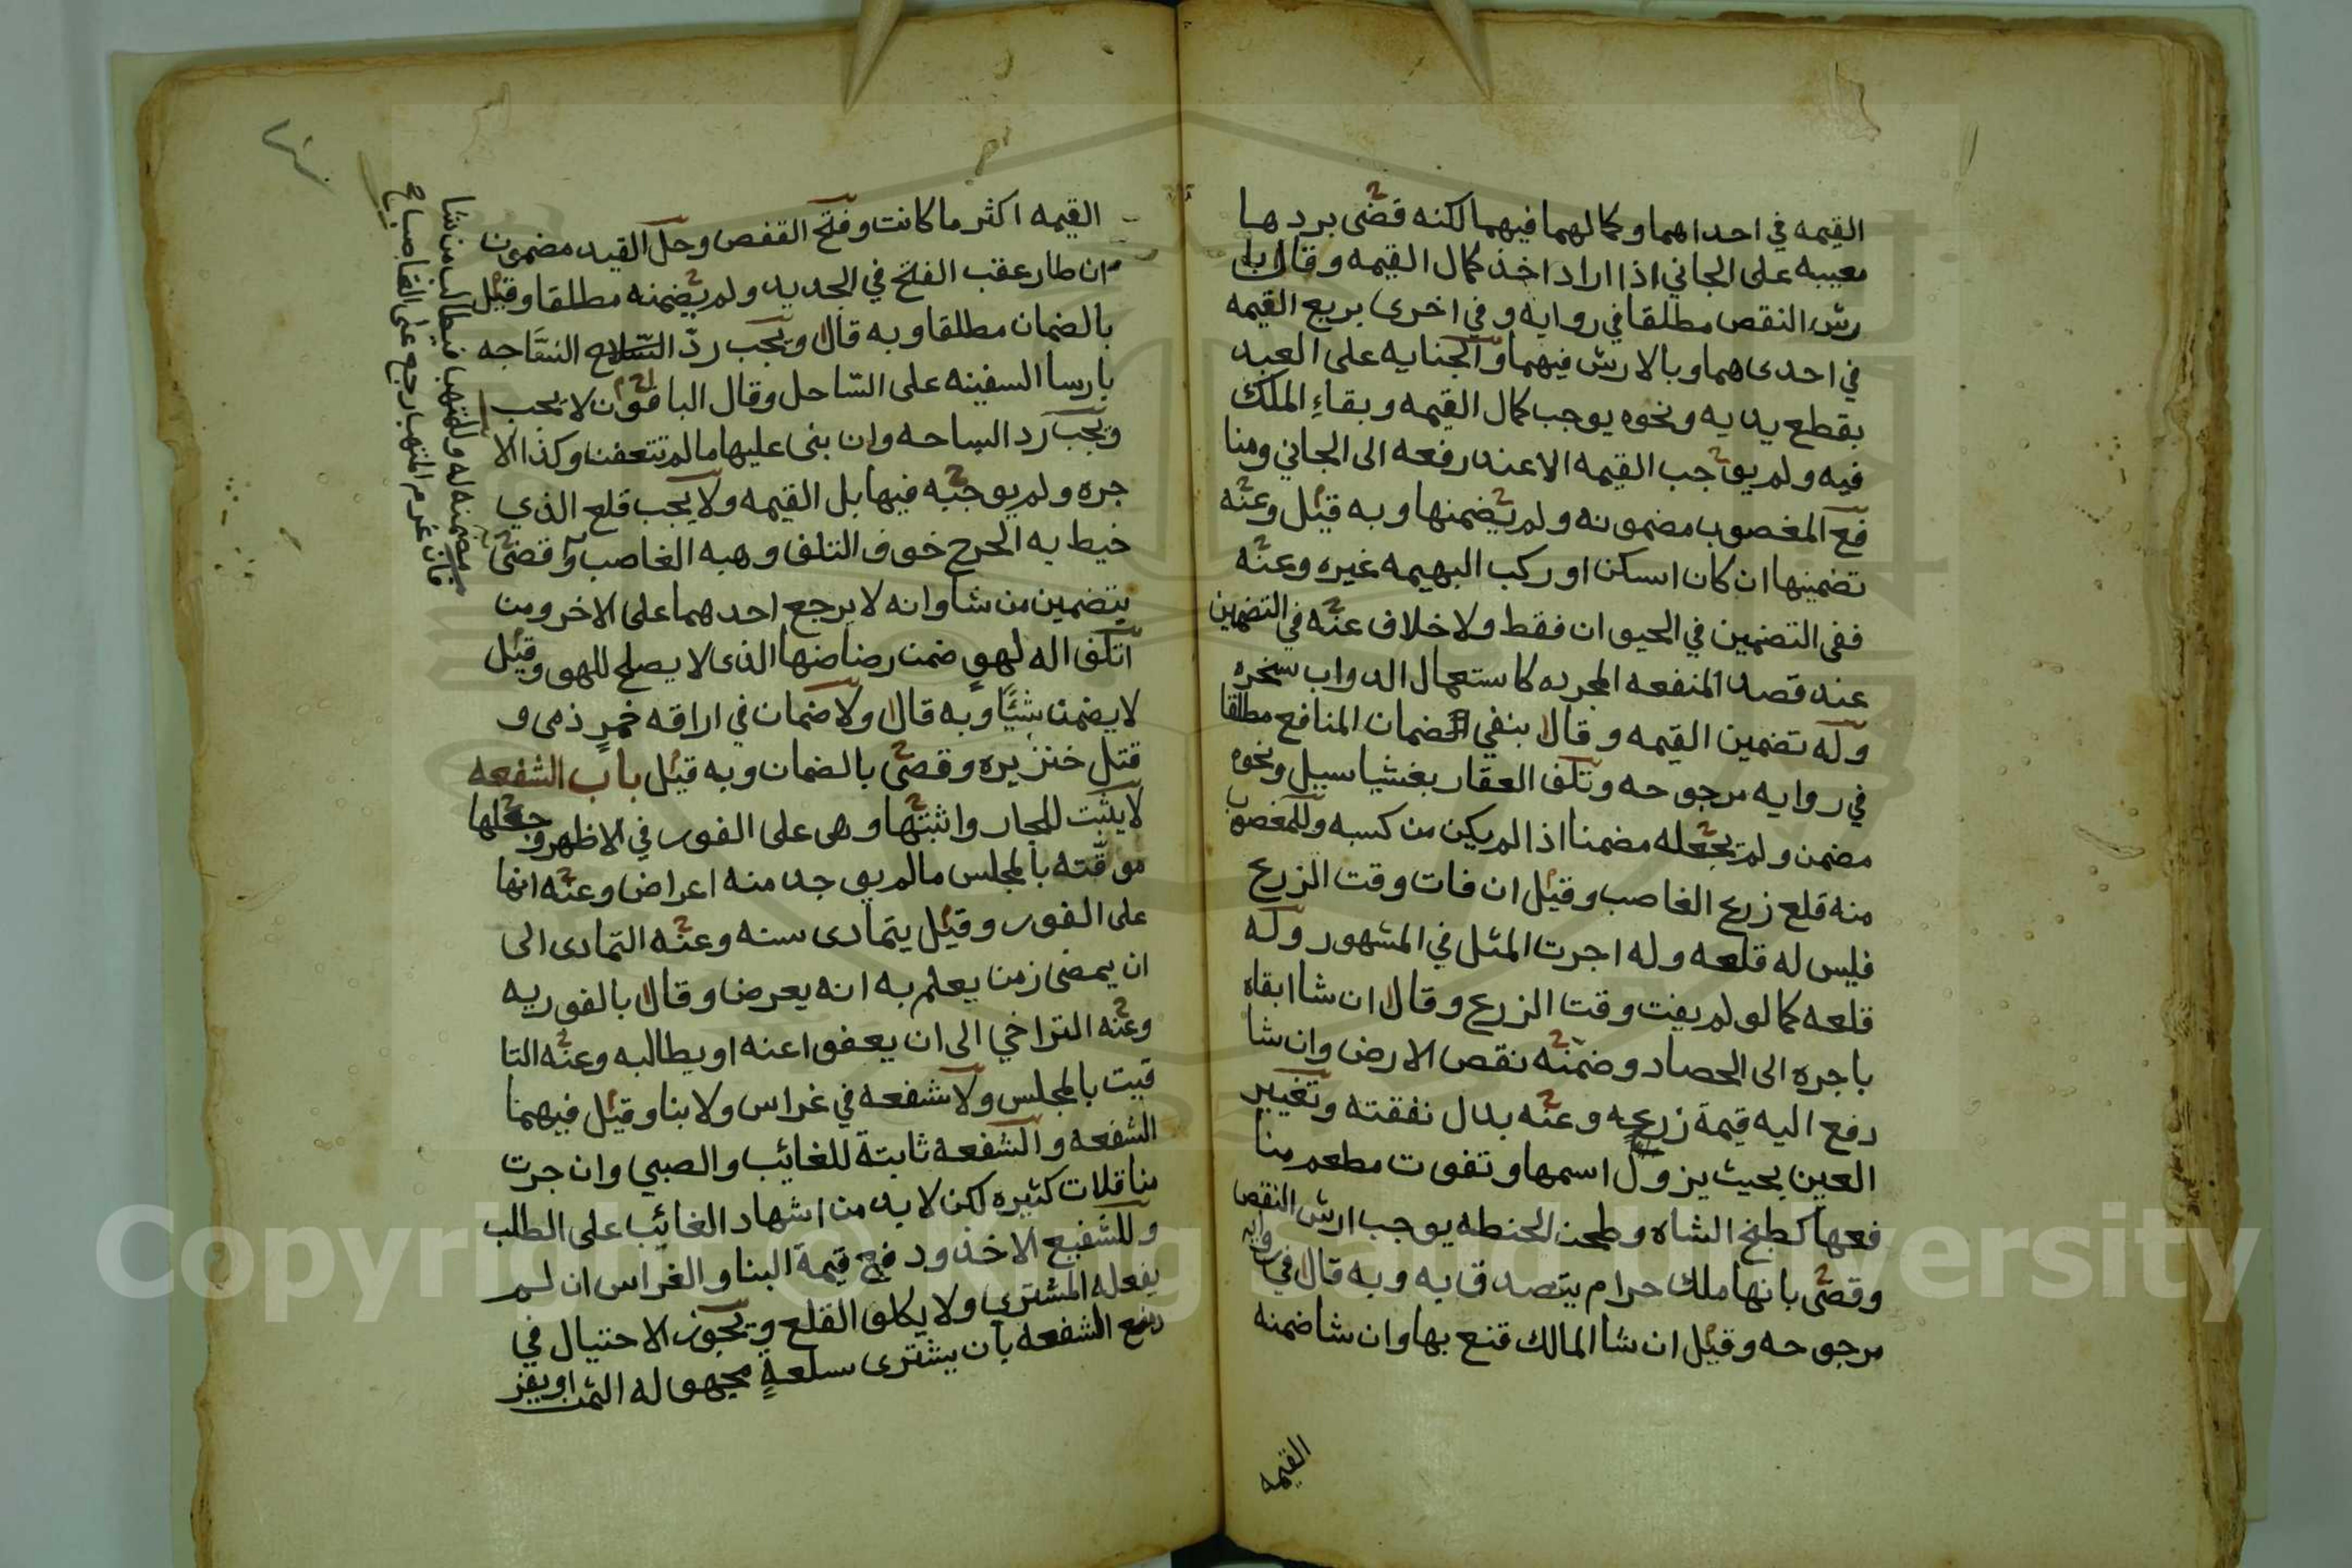 القيمه في احداهما وكمالهما فيهما لكنه قضى بردها
معيبه على الجاني اذا اراد اخذ كمال القيمه وقال با
رش النقص مطلقا في روايه وفي اخرى بربع القيمه
في احدى هما وبالارش فيهما والجنايه على العبد
بقطع يديه ونحوه يوجب كمال القيمه وبقاء الملك
فيه ولم يوجب القيمه الا عند رفعه الى الجاني ومنا
فع المغصوب مضمونه ولم يضمنها وبه قيل وعنه
تضمينها ان كان اسكن او ركب البهيمه غيره وعنه
ففى التضمين في الحيوان فقط ولا خلاف عنه في التضمين
عند قصد المنفعه المجرده كاستعمال الدواب سخره
وله تضمين القيمه وقال بنفي ضمان المنافع مطلقا
في روايه مرجوحه وتلف العقار بغشيا سيل ونحوه
مضمن ولم يجعله مضمنا اذا لم يكن من كسبه وللمغصوب
منه قلع زرع الغاصب وقيل ان فات وقت الزرع
فليس له قلعه وله اجرت المثل في المشهور وله
قلعه كما لو لم يفت وقت الزرع وقال ان شا ابقاه
باجره الى الحصاد وضمنه نقص الارض وان شا
دفع اليه قيمة زرعه وعنه بدل نفقته وتغيير
العين بحيث يزول اسمها وتفوت مطعم منا
فعها كطبخ الشاه وطحن الحنطه يوجب ارش النقص
وقضى بانها ملك حرام يتصدق به وبه قال في روايه
مرجوحه وقيل ان شا المالك قنع بها وان شا ضمنه
القيمه
القيمه اكثر ما كانت وفتح القفص وحل القيد مضمون
ان طار عقب الفتح في الجديد ولم يضمنه مطلقا وقيل
بالضمان مطلقا وبه قال ويجب رد الساجه
بارسا السفينه على الساحل وقال الباقون لا يجب
ويجب رد الساحه وان بنى عليها ما لم تتعفن وكذا الا
جره ولم يوجبه فيها بل القيمه ولا يجب قلع الذي
خيط به الجرح خوف التلف وهبه الغاصب قضى
بتضمين من شا وانه لا يرجع احدهما على الاخر ومن
اتلف اله لهو ضمن رضاضها الذى لا يصلح للهو وقيل
لا يضمن شيئا وبه قال ولا ضمان في اراقه خمر ذمى و
قتل خنزيره وقضى بالضمان وبه قيل باب الشفعه
لا يثبت للجار واثبتها وهى على الفور في الاظهر وجعلها
موقته بالمجلس ما لم يوجد منه اعراض وعنه انها
على الفور وقيل يتمادى سنه وعنه التمادى الى
ان يمضى زمن يعلم به انه يعرض وقال بالفوريه
وعنه التراخي الى ان يعفوا عنه او يطالبه وعنه التا
قيت بالمجلس ولا شفعه في غراس ولا بنا وقيل فيهما
الشفعه والشفعه ثابتة للغائب والصبي وان جرت
مناقلات كثيره لكن لا بد من اشهاد الغائب على الطلب
وللشفيع الاخذ ودفع قيمة البنا والغراس ان لم
يفعله المشترى ولا يكلف القلع ويجوز الاحتيال في
دفع الشفعه بان يشترى سلعة مجهوله الثمن او يقر
تضمنه له وللمتهب فيطالب من شا
فان غرم المتهب رجع على الغاصب
Copyright © King Saud University